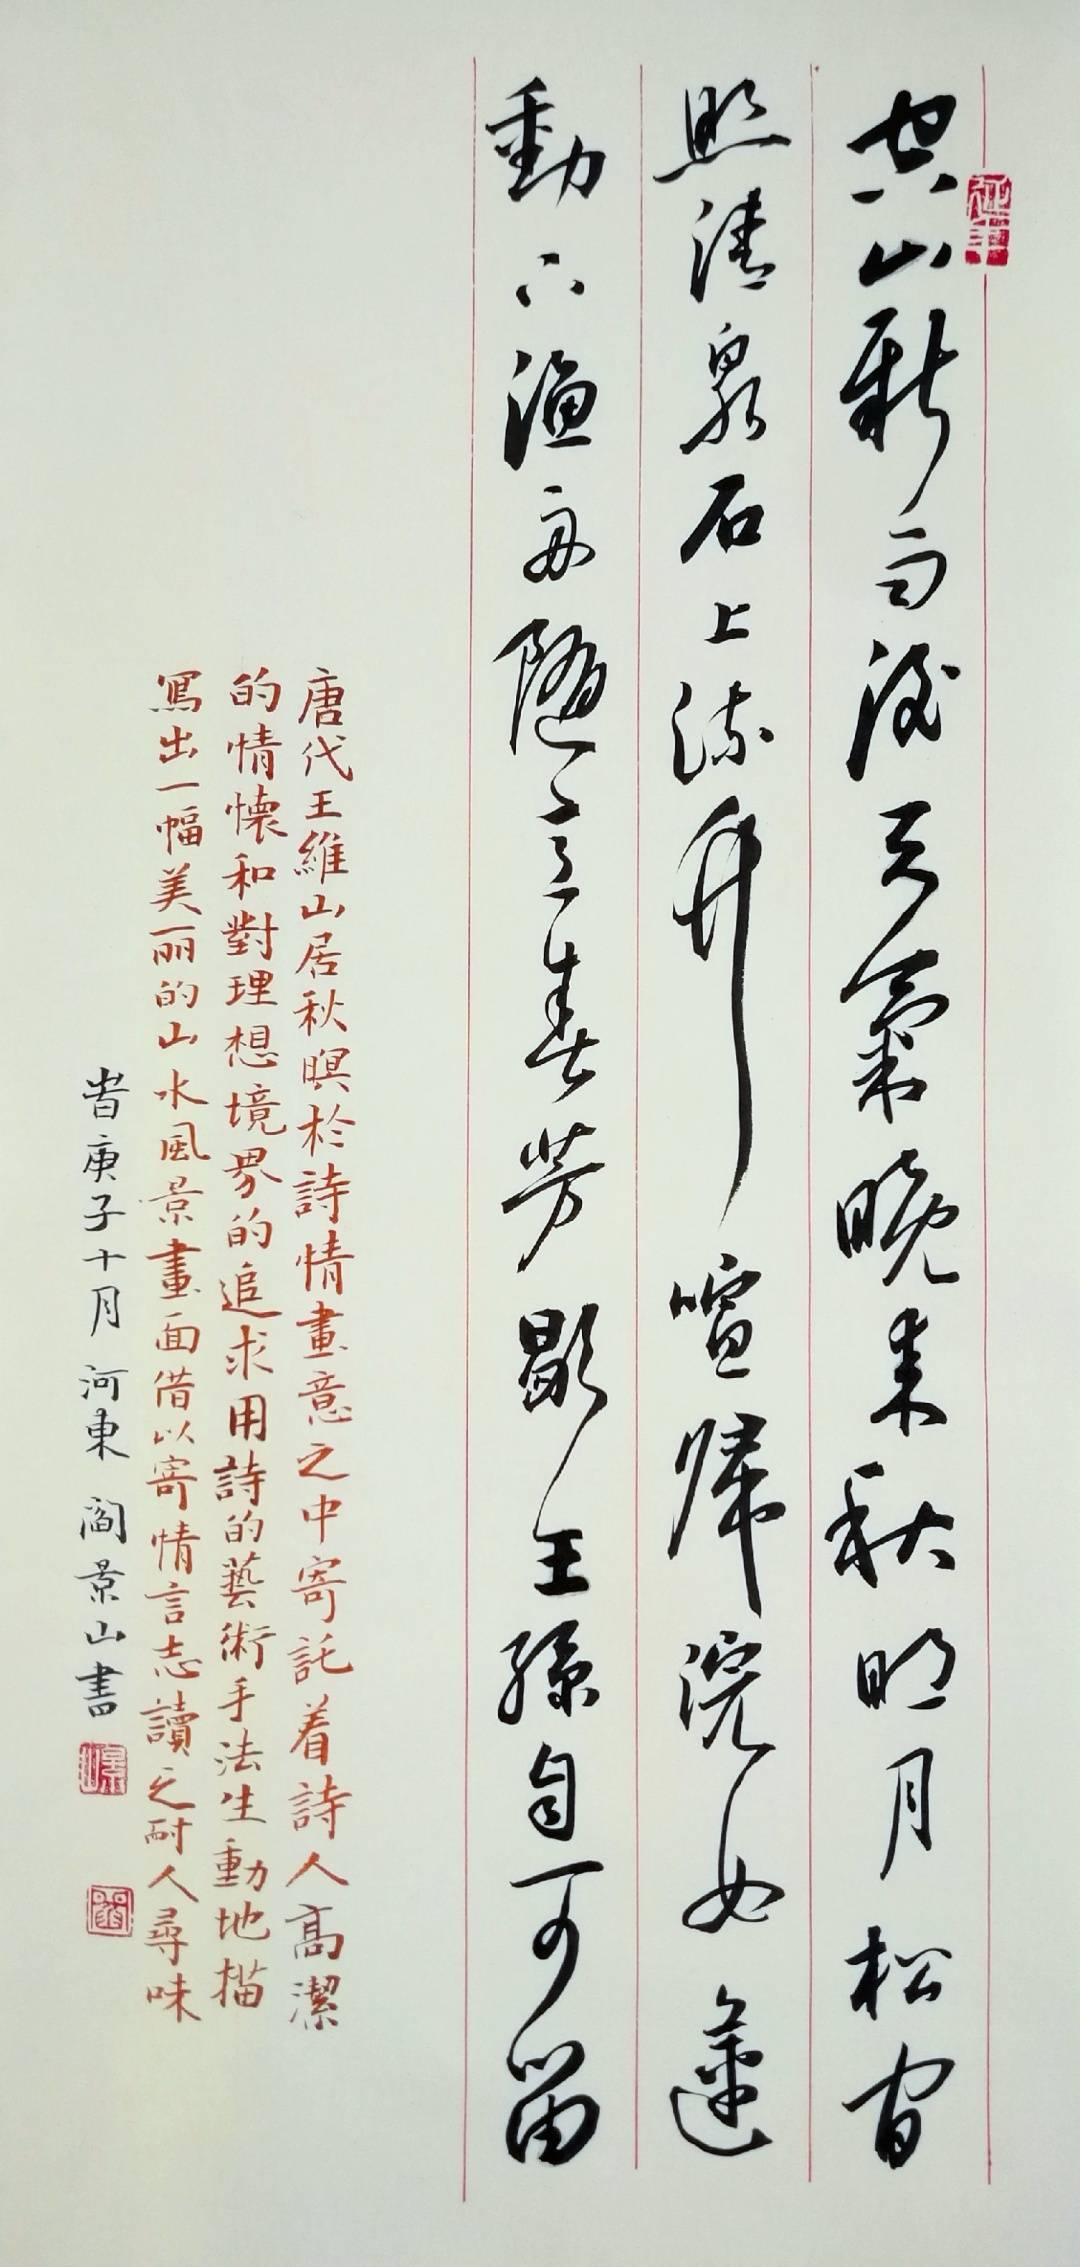 延年
空山新雨後天氣晚來秋明月松間
照清泉石上流竹喧歸浣女蓮
動下漁舟隨意春芳歇王孫自可留
唐代王維山居秋暝於詩情畫意之中寄託着詩人高潔
的情懷和對理想境界的追求用詩的藝術手法生動地描
寫出一幅美丽的山水風景畫面借以寄情言志讀之耐人尋味
旹庚子十月河東 閻景山書